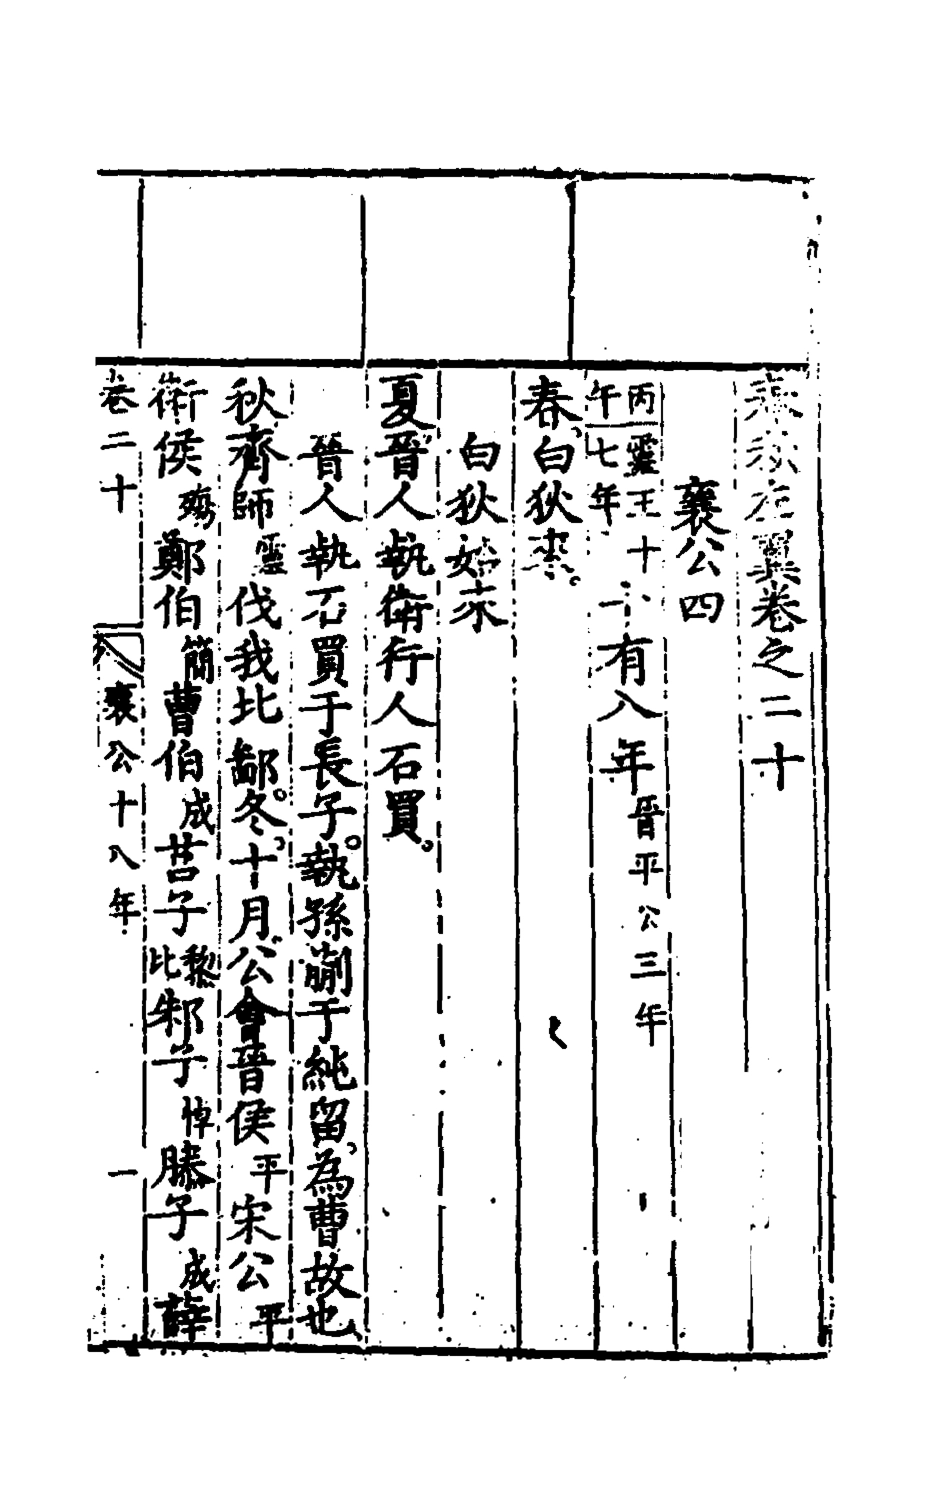 春秋左翼卷之二十
襄公四
丙午靈王十七年十有八年晉平公三年
春白狄來
白狄始來
夏晉人執衛行人石買
晉人執石買于長子執孫蒯于純留為曹故也
秋齊師靈伐我北鄙冬十月公會晉侯平宋公平
衛侯殤鄭伯簡曹伯成莒子黎比邾子悼滕子成薛
卷二十 襄公十八年 一